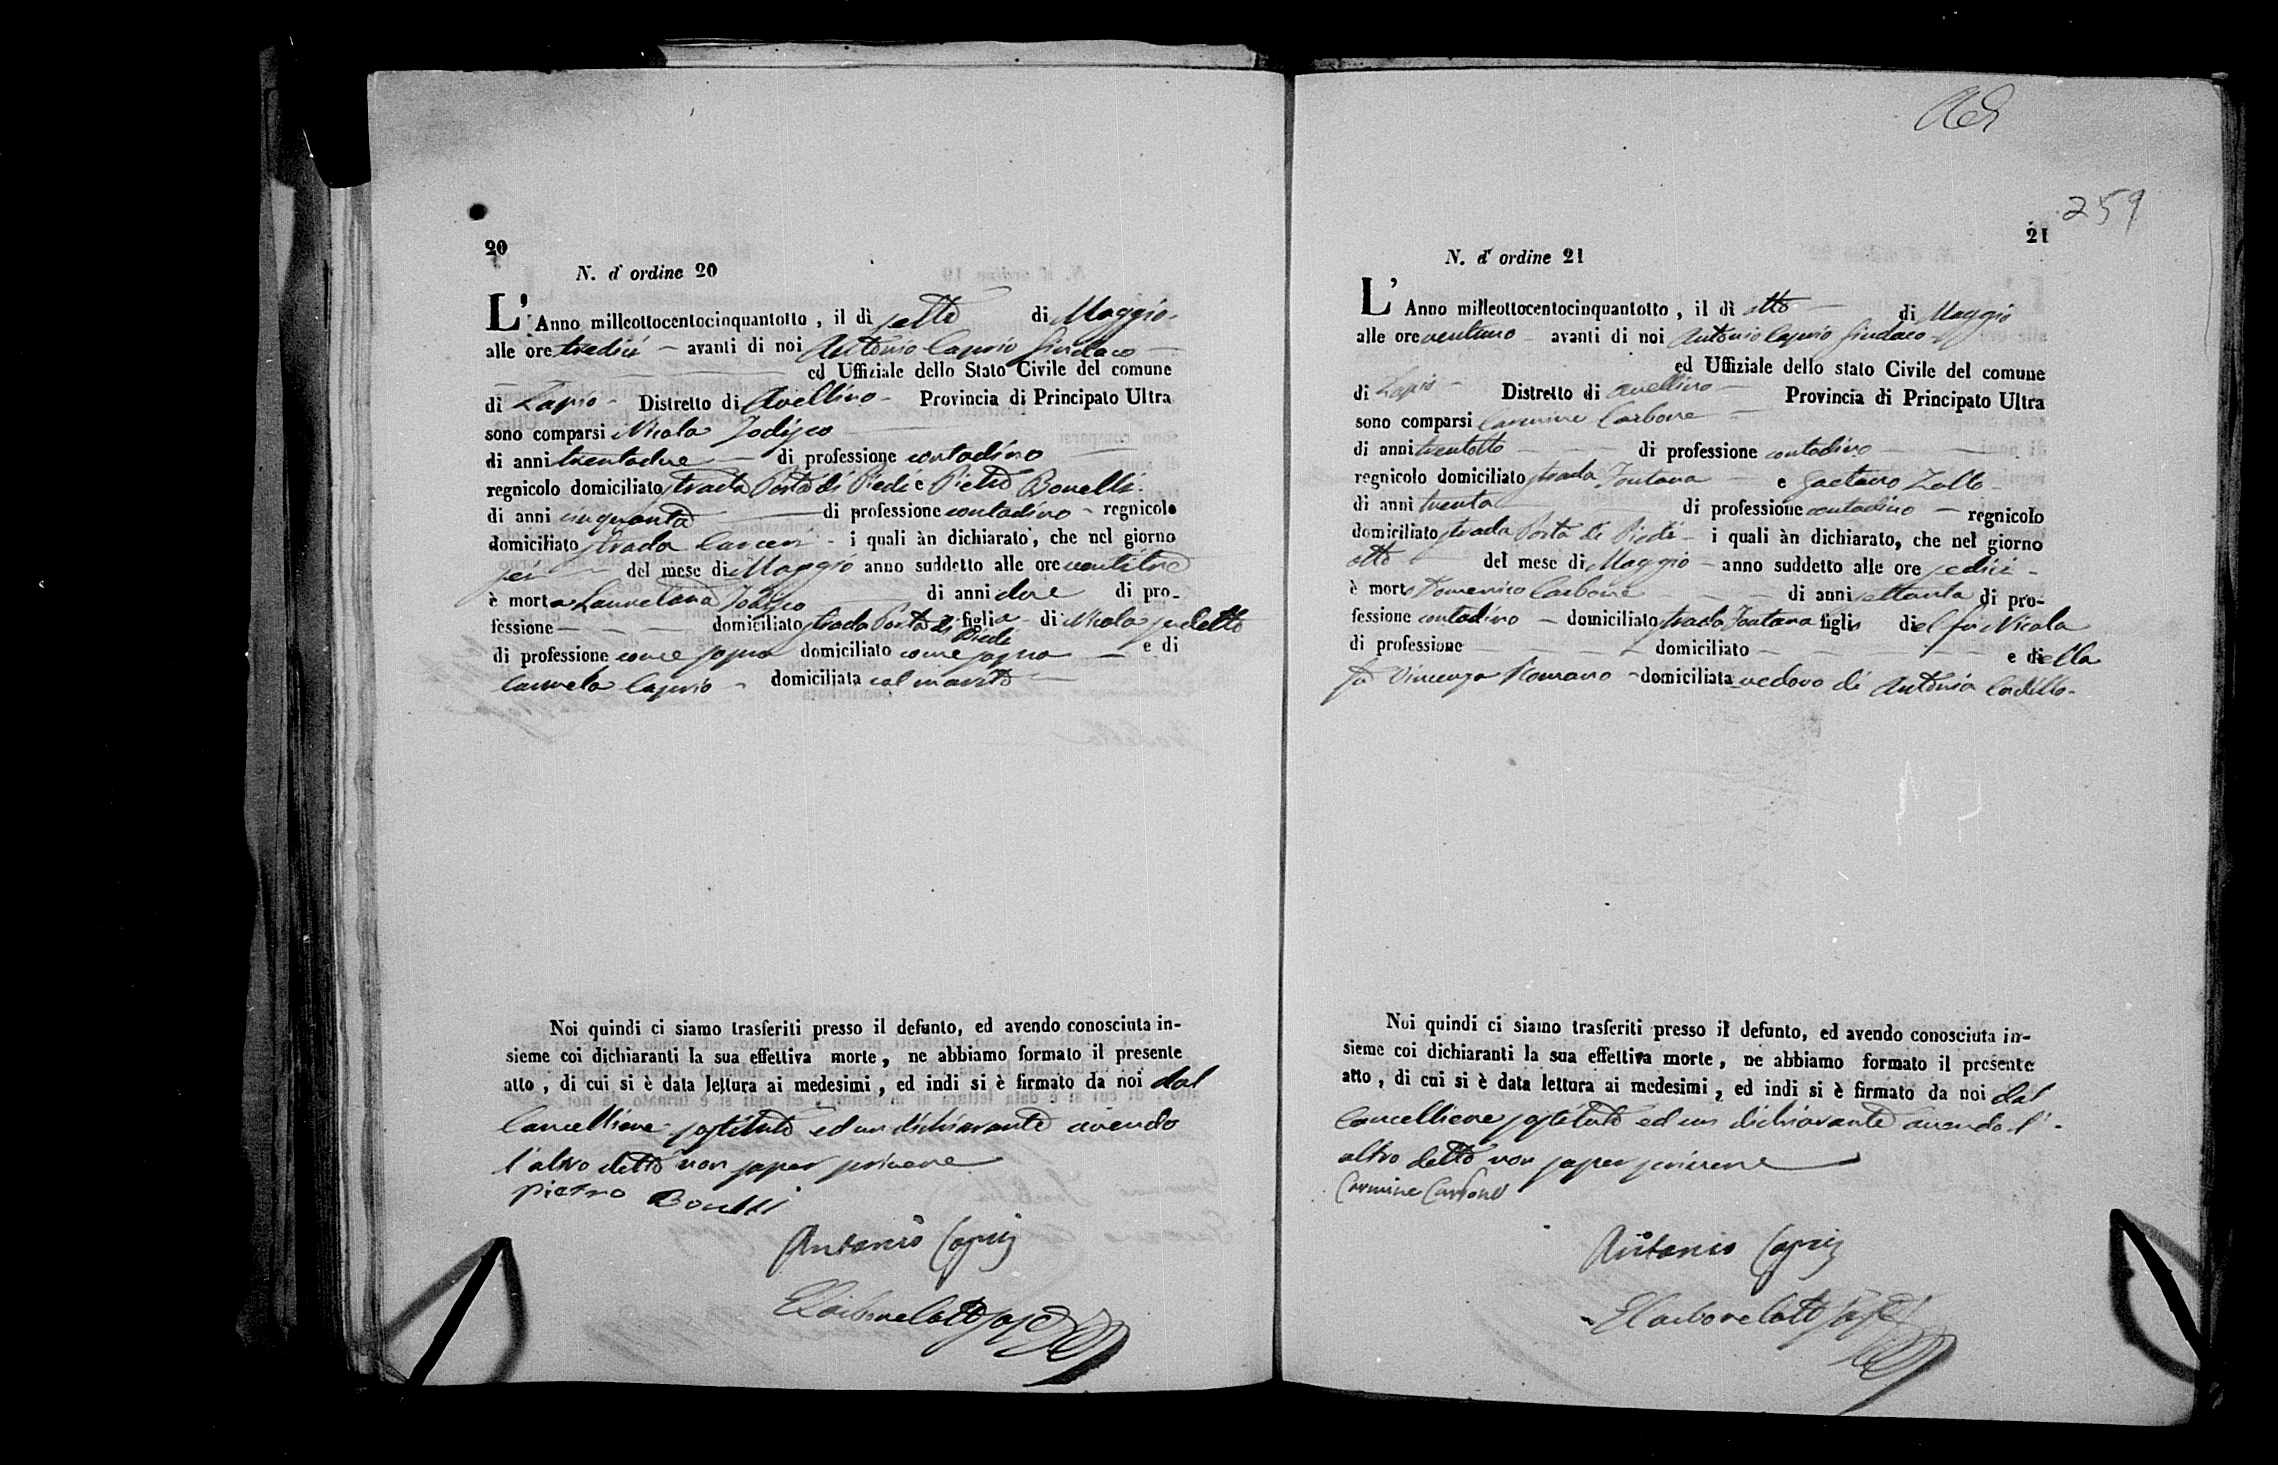 20
N. d' ordine 20
L' Anno milleottocentocinquantotto , il dì sette di Maggio
alle ore tredici avanti di noi Antonio Caprio Sindaco
ed Uffiziale dello Stato Civile del comune
di Lapio Distretto di Avellino Provincia di Principato Ultra
sono comparsi Nicola Jodisco
di anni trentadue di professione contadino
regnicolo domiciliato strada Porta di Piedi e Pietro Bonelli
di anni cinquanta di professione contadino regnicolo
domiciliato strada Carceri i quali àn dichiarato, che nel giorno
sei del mese di Maggio anno suddetto alle ore ventitre
è morta Lauretana Jodisco di anni due di pro-
fessione domiciliato strada Porta di Piedi figlia di Nicola sudetto
di professione come sopra domiciliato come sopra e di
Carmela Caprio domiciliata col marito
Noi quindi ci siamo trasferiti presso il defunto, ed avendo conosciuta in-
sieme coi dichiaranti la sua effettiva morte, ne abbiamo formato il presente
atto, di cui si è data lettura ai medesimi, ed indi si è firmato da noi dal
Cancelliere sostituto ed un dichiarante avendo
l'altro detto non saper scrivere
Pietro Bonelli
Antonio Caprio
259
21
N. d' ordine 21
L' Anno milleottocentocinquantotto , il dì otto di Maggio
alle ore ventuno avanti di noi Antonio Caprio Sindaco
ed Uffiziale dello stato Civile del comune
di Lapio Distretto di Avellino Provincia di Principato Ultra
sono comparsi Carmine Carbone
di anni trentotto di professione contadino
regnicolo domiciliato strada Fontana e Gaetano Zollo
di anni trenta di professione contadino regnicolo
domiciliato strada Porta di Piedi i quali àn dichiarato, che nel giorno
otto del mese di Maggio anno suddetto alle ore sedici
è morto Domenico Carbone di anni settanta di pro-
fessione contadino domiciliato strada Fontana figlio del fu Nicola
di professione domiciliato e della
fu Vincenza Romano domiciliata vedovo di Antonia
Noi quindi ci siamo trasferiti presso il defunto, ed avendo conosciuta in-
sieme coi dichiaranti la sua effettiva morte, ne abbiamo formato il presente
atto, di cui si è data lettura ai medesimi, ed indi si è firmato da noi dal
Cancelliere sostituto ed un dichiarante avendo l'
altro detto non saper scrivere
Carmine Carbone
Antonio Caprio